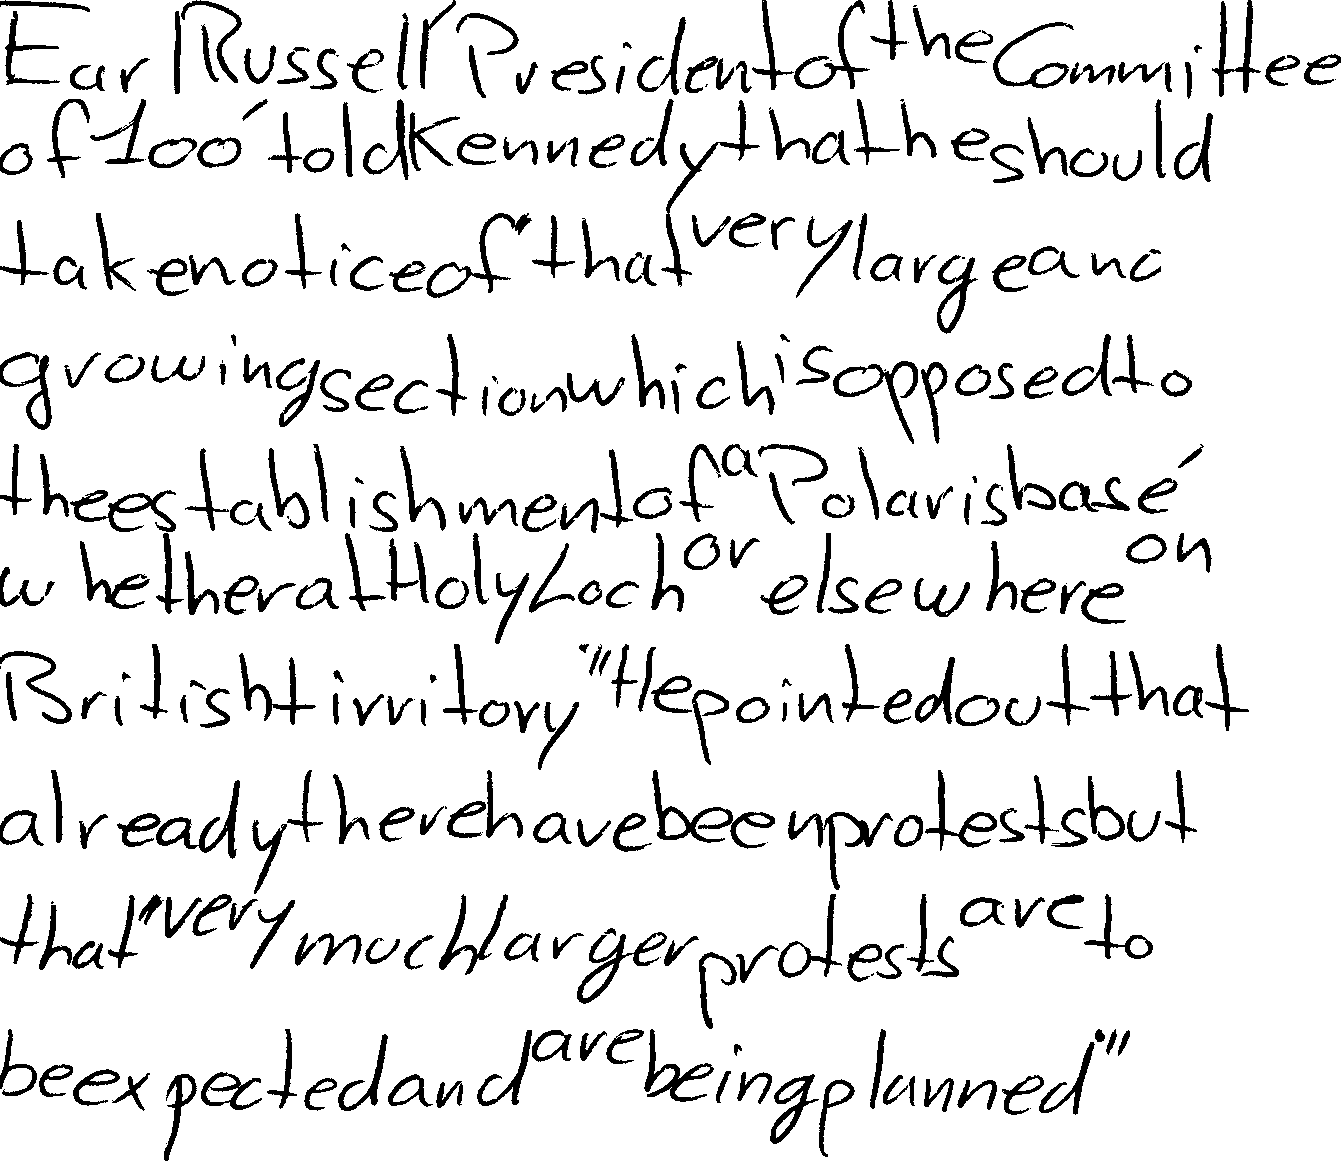 Earl Russell President of the Committee
of 100' told Kennedy that he should
take notice of "that very large and
growing section which is opposed to
the establishment of a Polaris base'
whether at Holy Loch or elsewhere on
British tirritory" He pointed out that
already there have been protests but
that "very much larger protests are to
be expected and are being planned"